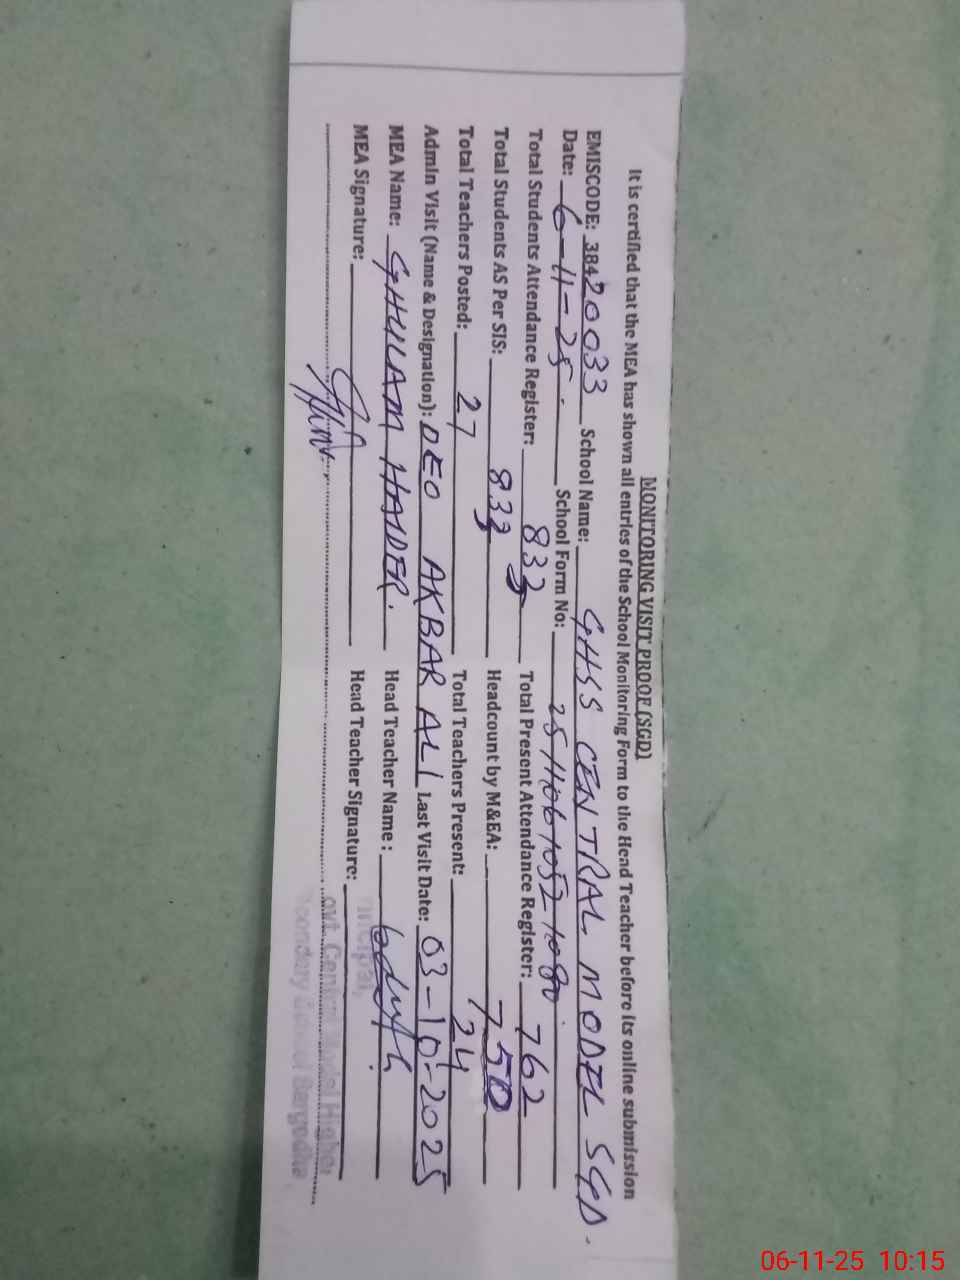 MONITORING VISIT PROOF (SGD)
It is certified that the MEA has shown all entries of the School Monitoring Form to the Head Teacher before its online submission
EMISCODE: 38420033 School Name: GHSS CENTRAL MODEL SGD.
Date: 6-11-25. School Form No:
Total Students Attendance Register: 833 Total Present Attendance Register: 762
Total Students AS Per SIS: 833 Headcount by M&EA: 750
Total Teachers Posted: 27 Total Teachers Present: 24
Admin Visit (Name & Designation): DEO AKBAR ALI Last Visit Date: 03-10-2025
MEA Name: GHULAM HAIDER. Head Teacher Name:
MEA Signature: Head Teacher Signature:
Principal,
Govt. Central Model Higher
Secondary School Sargodha
06-11-25 10:15